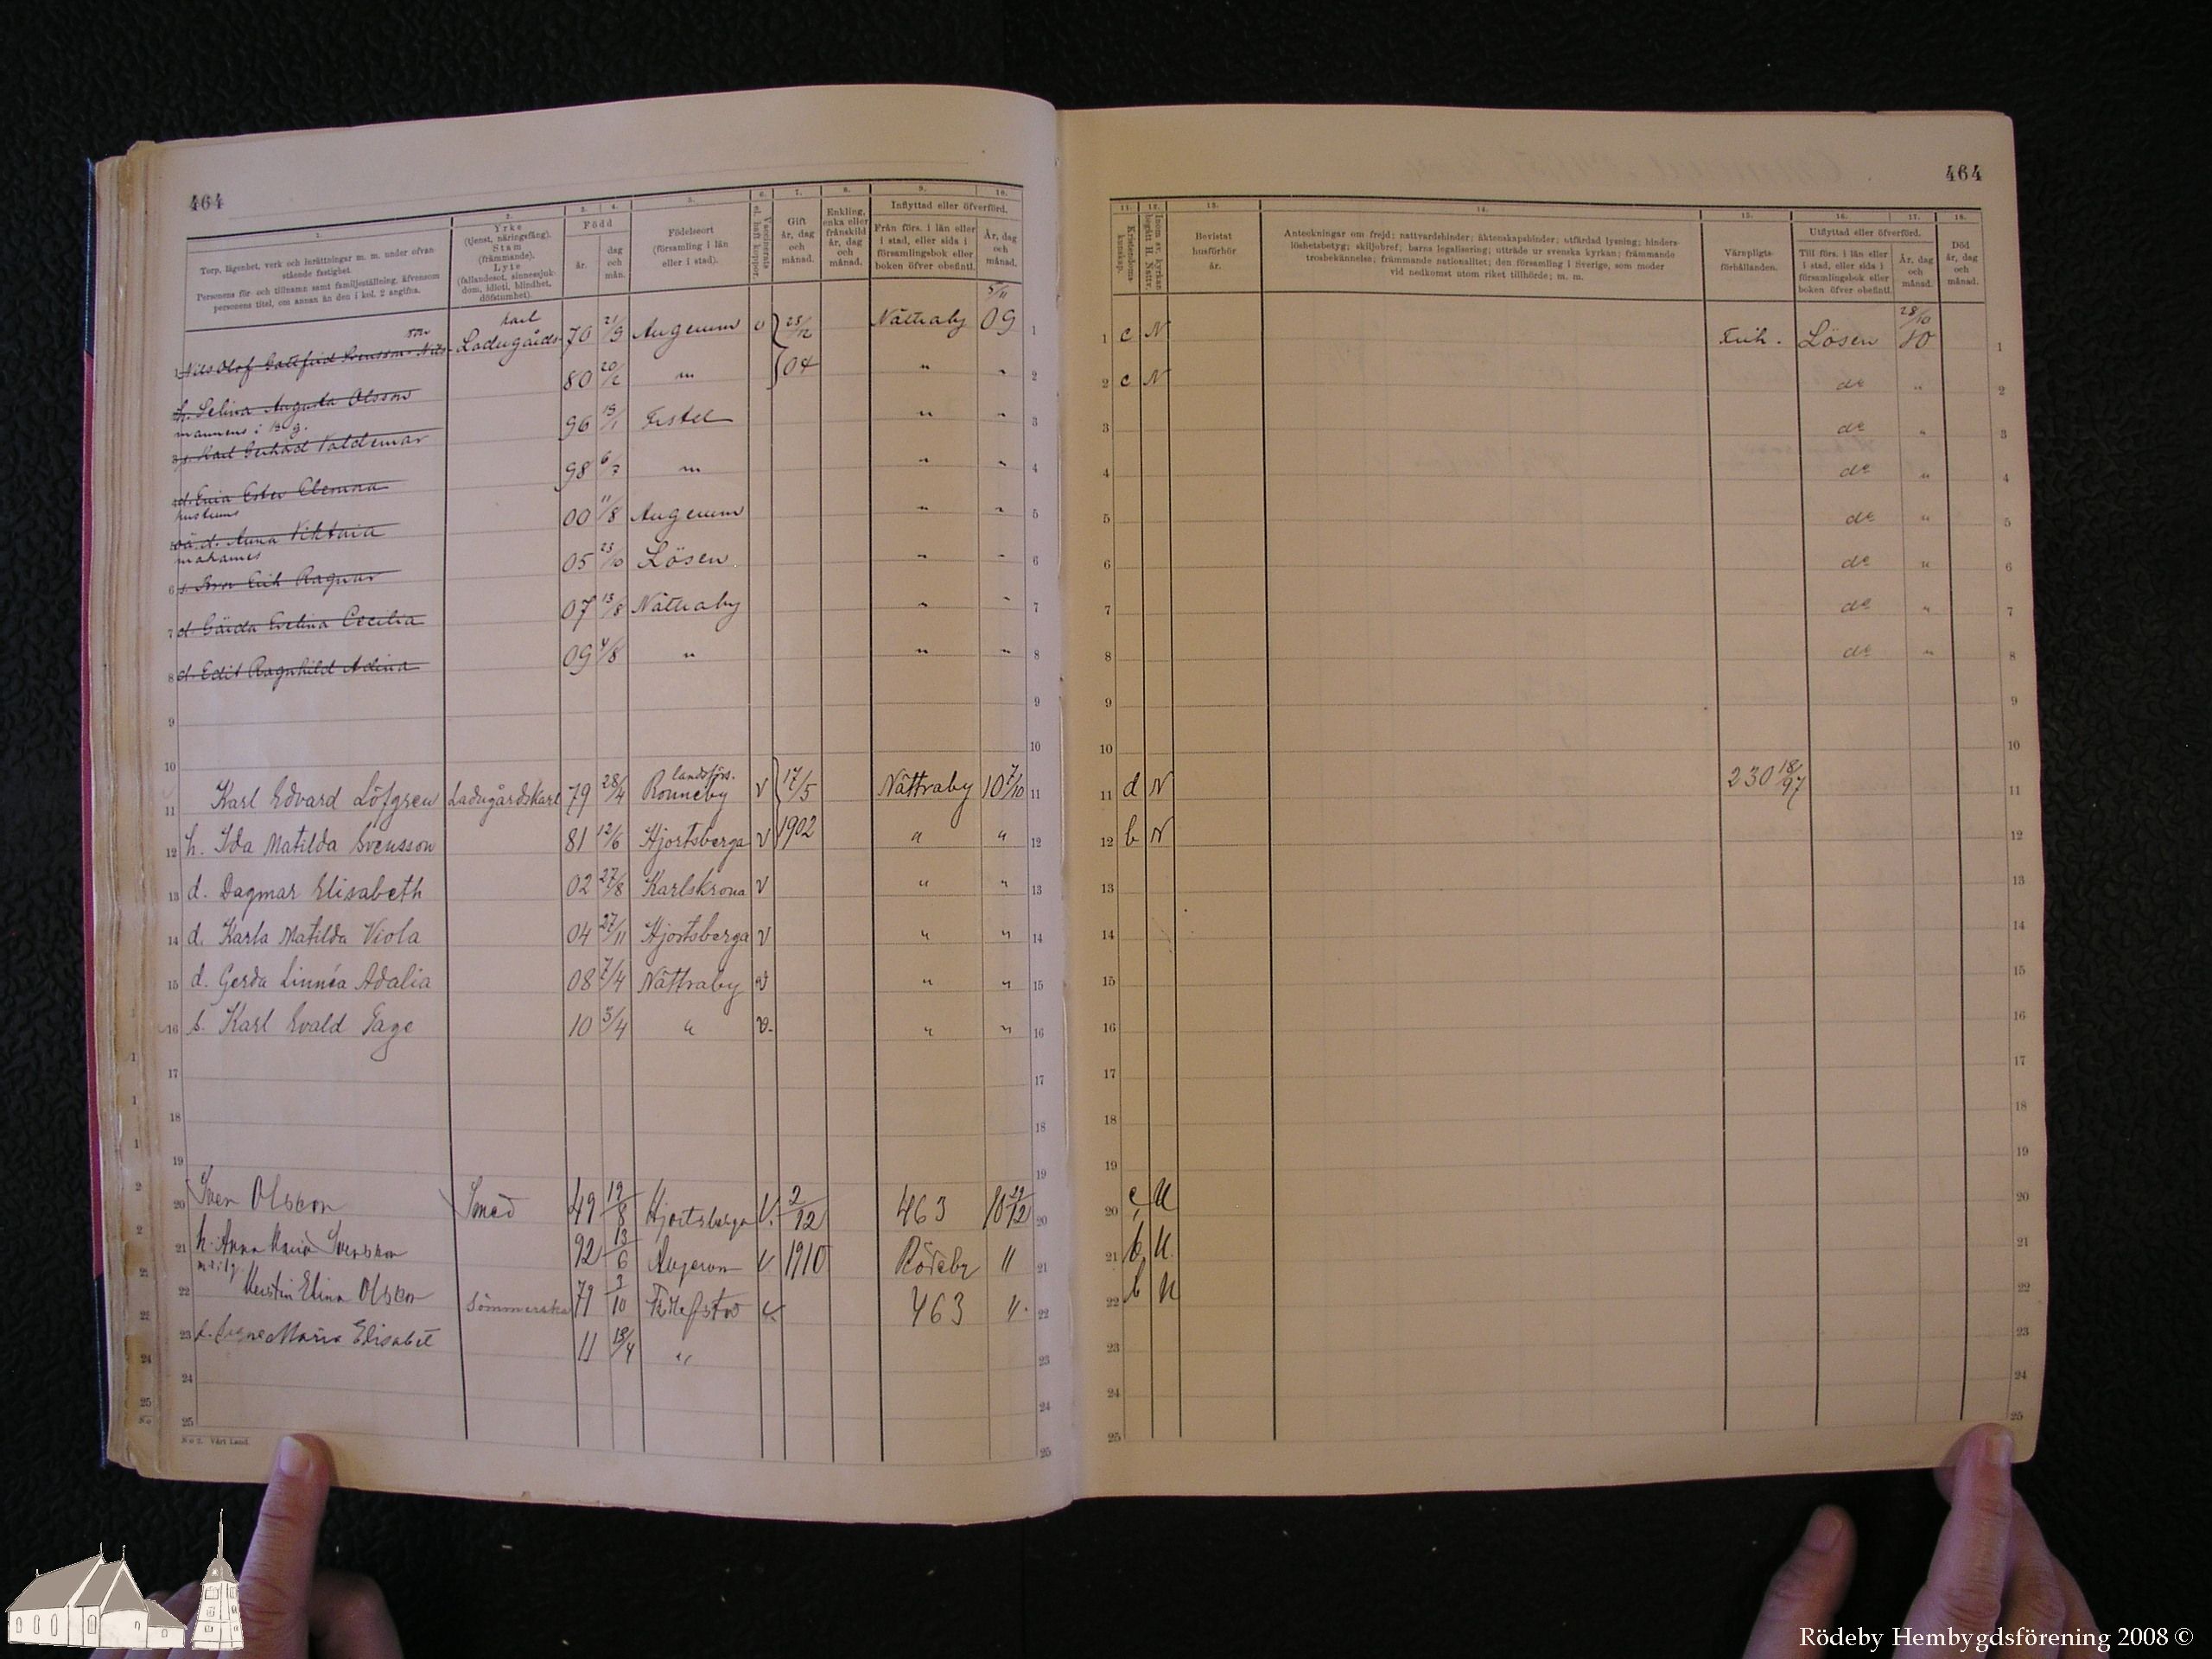 464
464
1. 2. 3. 4. 5. 6. 7. 8. 9. 10.
11. 12. 13. 14. 15. 16. 17. 18.
Torp, lägenhet, verk och inrättningar m. m. under ofvanstående fastighet.
Personens för- och tillnamn samt familjeställning, äfvensom personens titel, om annan än den i kol. 2 angifna.
Yrke (tjenst, näringsfång). Stam (främmande). Lyte (fallandesot, sinnessjukdom, idioti, blindhet, döfstumhet).
Född år. dag och mån.
Födelseort (församling i län eller i stad).
Vaccinerats el. haft koppor.
Gift år, dag och månad.
Enkling, enka eller frånskild år, dag och månad.
Inflyttad eller öfverförd.
Från förs. i län eller i stad, eller sida i församlingsbok eller boken öfver obefintl.
År, dag och månad.
Kristendomskunskap.
Inom sv. kyrkan begått H. Nattv.
Bevistat husförhör år.
Anteckningar om frejd; nattvardshinder; äktenskapshinder; utfärdad lysning; hinderslöshetsbetyg; skiljobref; barns legalisering; utträde ur svenska kyrkan; främmande trosbekännelse; främmande nationalitet; den församling i Sverige, som moder vid nedkomst utom riket tillhörde; m. m.
Värnpligtsförhållanden.
Utflyttad eller öfverförd.
Till förs. i län eller i stad, eller sida i församlingsbok eller boken öfver obefintl.
År, dag och månad.
Död år, dag och månad.
1 Nils Olof Gottfrid Svensson Nilsson Ladugårdskarl 70 21/9 Augerum v 28/12 Nättraby 5/11 09 1 c N Frik. Lösen 28/10 10
2 h. Selina Augusta Olsson 80 20/2 " 04 " " 2 c N do "
mannens i 1 g.
3 s. Karl Gerhard Valdemar 96 13/1 Tistel " " 3 do "
4 98 6/7 " " " 4 do "
hustruns
5 oä. d. Anna Viktoria 00 11/8 Augerum " " 5 do "
makarnes
6 s. Bror Erik Ragnar 05 23/10 Lösen " " 6 do "
7 d. Gärda Evelina Cecilia 07 13/8 Nättraby " " 7 do "
8 d. Edit Ragnhild Adina 09 4/8 " " " 8 do "
9
10
landsförs.
11 Karl Edvard Löfgren Ladugårdskarl 79 28/4 Ronneby v 17/5 Nättraby 10 7/10 11 d N 230 18/97
12 h. Ida Matilda Svensson 81 12/6 Hjortsberga v 1902 " " 12 b N
13 d. Dagmar Elisabeth 02 27/8 Karlskrona v " " 13
14 d. Karla Matilda Viola 04 27/11 Hjortsberga v " " 14
15 d. Gerda Linnéa Adalia 08 7/4 Nättraby v " " 15
16 s. Karl Evald Tage 10 3/4 " v. " " 16
17
18
19
20 Sven Olsson Smed 49 19/8 Hjortsberga v. 2/12 463 10 29/12 20 c N
21 h. Anna Maria Svensson 92 13/6 Augerum v 1910 Rödeby " 21 b N.
m. i 1 g.
22 Kerstin Elina Olsson Sömmerska 79 2/10 v. 463 " 22 b N
23 Maria Elisabet 11 18/4 " 23
24
25
No 2. Vårt Land.
Rödeby Hembygdsförening 2008 ©